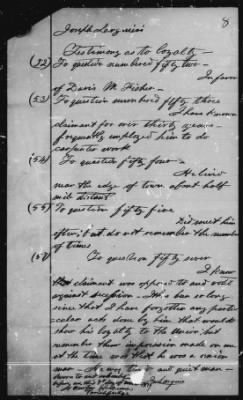 8
Joseph
Testimony as to loyalty —
(52) To question numbered fifty two —
In favor
of Davis M. Fisher —
(53) To question numbered fifty three
I have known
claimant for over thirty years —
frequently employed him to do
carpenter work
(54) To question fifty four —
He lived
near the edge of town about half
mile distant
(55) To question fifty five
Did meet him
often; but do not remember the number
of times
(57) To question fifty seven
I know
that claimant was opposed to and voted
against secession — It's been so long
since that I have forgotten any partic-
ular act done by him that would
show his loyalty to the Union, but
remember the impression made on me
at the time was that he was a union
man — He was a and quiet man —